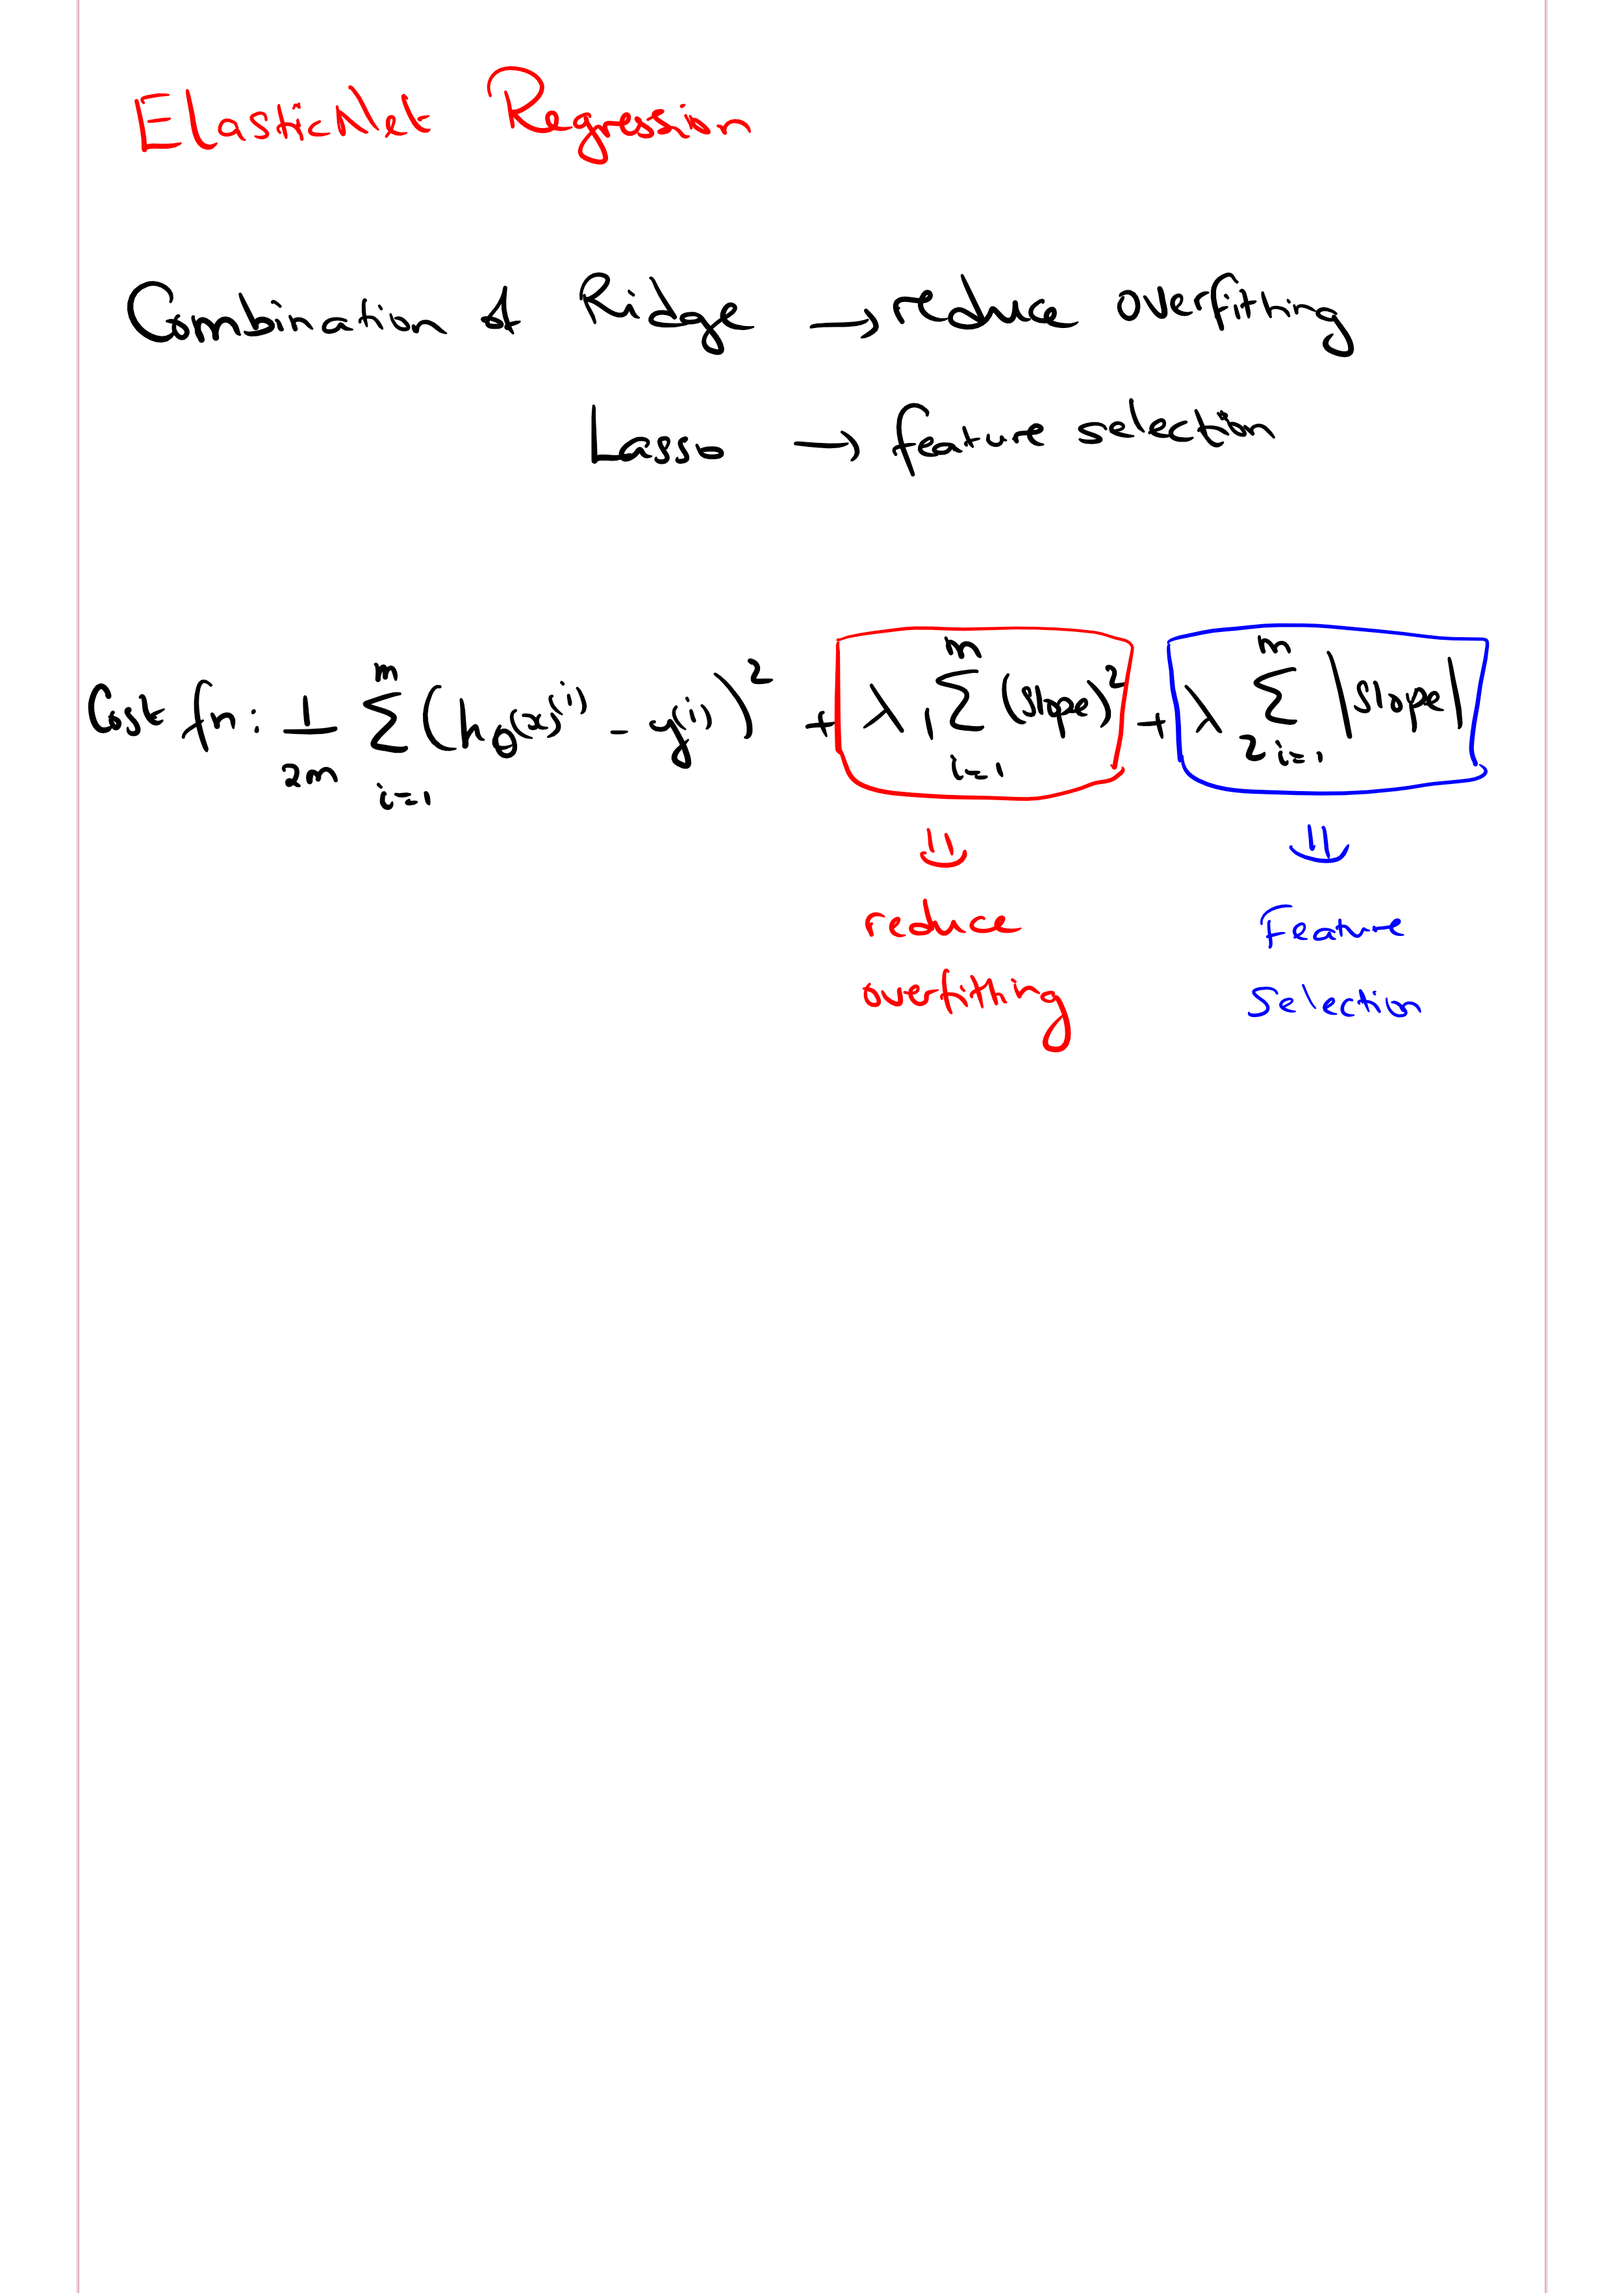 ElasticNet Regression
Combination of Ridge → reduce overfitting
Lasso → feature selection
Cost fn : 1/2m m∑i=1 (hθ(x)⁽ⁱ⁾ - y⁽ⁱ⁾)² + λ₁ m∑i=1 (slope)² + λ₂ m∑i=1 |slope|
⇓ ⇓
reduce Feature
overfitting Selection